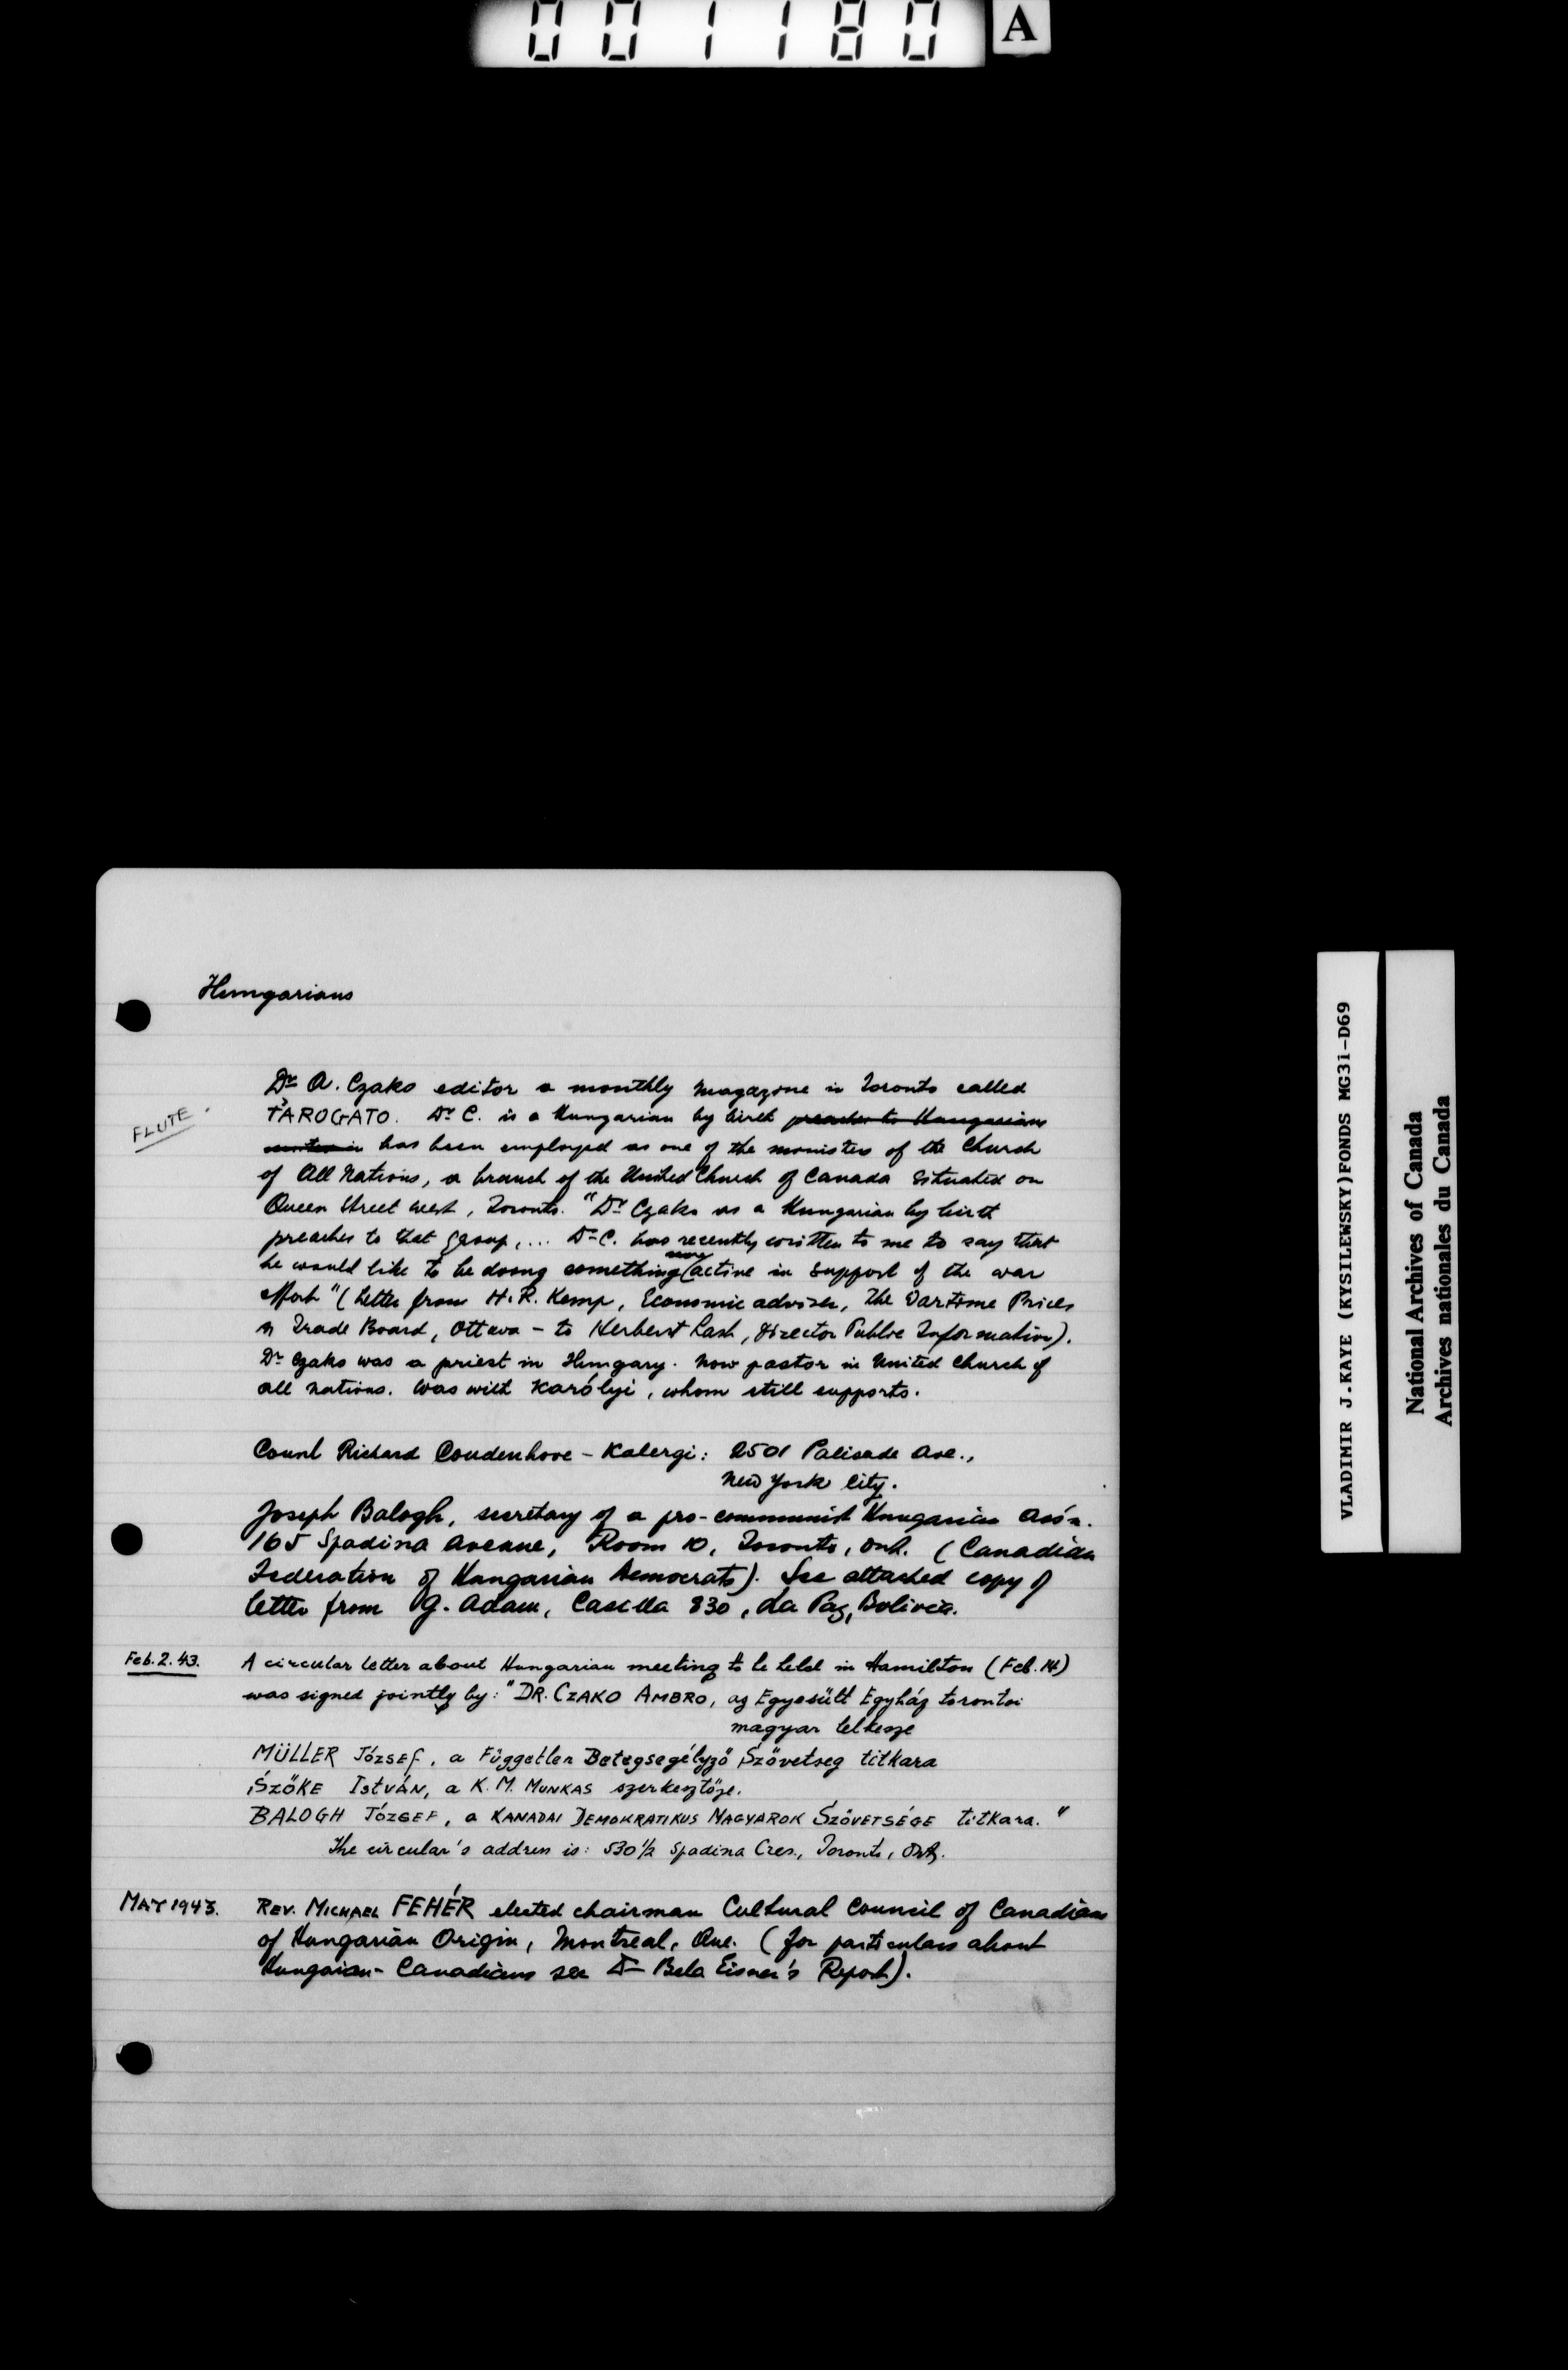 001180 A
Hungarians
Dr A. Czako editor a monthly magazine in Toronto called
FLUTE.
TÁROGATO. Dr C. is a Hungarian by birth preacher to Hungarians
has been employed as one of the ministers of the Church
of All Nations, a branch of the United Church of Canada situated on
Queen Street West, Toronto. "Dr Czako as a Hungarian by birth
preaches to that group, ... Dr C. has recently written to me to say that
he would like to be doing something more active in support of the war
effort" (Letter from H.R. Kemp, Economic adviser, The Wartime Prices
& Trade Board, Ottawa - to Herbert Lash, Director Public Information).
Dr Czako was a priest in Hungary. Now pastor in United Church of
All Nations. Was with Karólyi, whom still supports.
Count Richard Coudenhove - Kalergi: 2501 Palisade Ave.,
New York City.
Joseph Balogh, secretary of a pro-communist Hungarian Ass'n.
165 Spadina Avenue, Room 10, Toronto, Ont. (Canadian
Federation of Hungarian Democrats). See attached copy of
letter from G. Adam, Casilla 830, La Paz, Bolivia.
Feb. 2. 43. A circular letter about Hungarian meeting to be held in Hamilton (Feb. 14)
was signed jointly by: "DR. CZAKO AMBRO, az Egyesült Egyház torontoi
magyar lelkesze
MÜLLER József, a Független Betegsegélyző Szövetseg titkara
SZŐKE ISTVÁN, a K. M. MUNKAS szerkesztője.
BALOGH JÓZSEF, a KANADAI DEMOKRATIKUS MAGYAROK SZÖVETSÉGE titkara."
The circular's address is: 530 1/2 Spadina Cres., Toronto, Ont.
MAY 1943. REV. MICHAEL FEHÉR elected chairman Cultural Council of Canadians
of Hungarian Origin, Montreal, Que. (for particulars about
Hungarian-Canadians see Dr Bela Eisner's Report).
VLADIMIR J.KAYE (KYSILEWSKY)FONDS MG31-D69
National Archives of Canada
Archives nationales du Canada